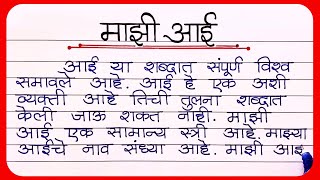 माझी आई
आई या शब्दात संपूर्ण विश्व
समावले आहे. आई हे एक अशी
व्यक्ती आहे तिची तुलना शब्दात
केली जाऊ शकत नाही. माझी
आई एक सामान्य स्त्री आहे. माझ्या
आईचे नाव संध्या आहे. माझी आइ